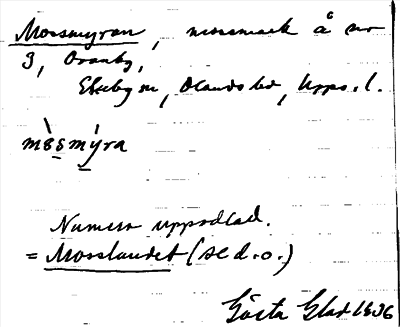 Mossmyran, mossmark å nr
3, Oranby,
Ekeby sn, Olands hd, Upps. l.
mòsmýra
Numera uppodlad.
= Mosslandet (se d.o.)
Gösta Glad 1936